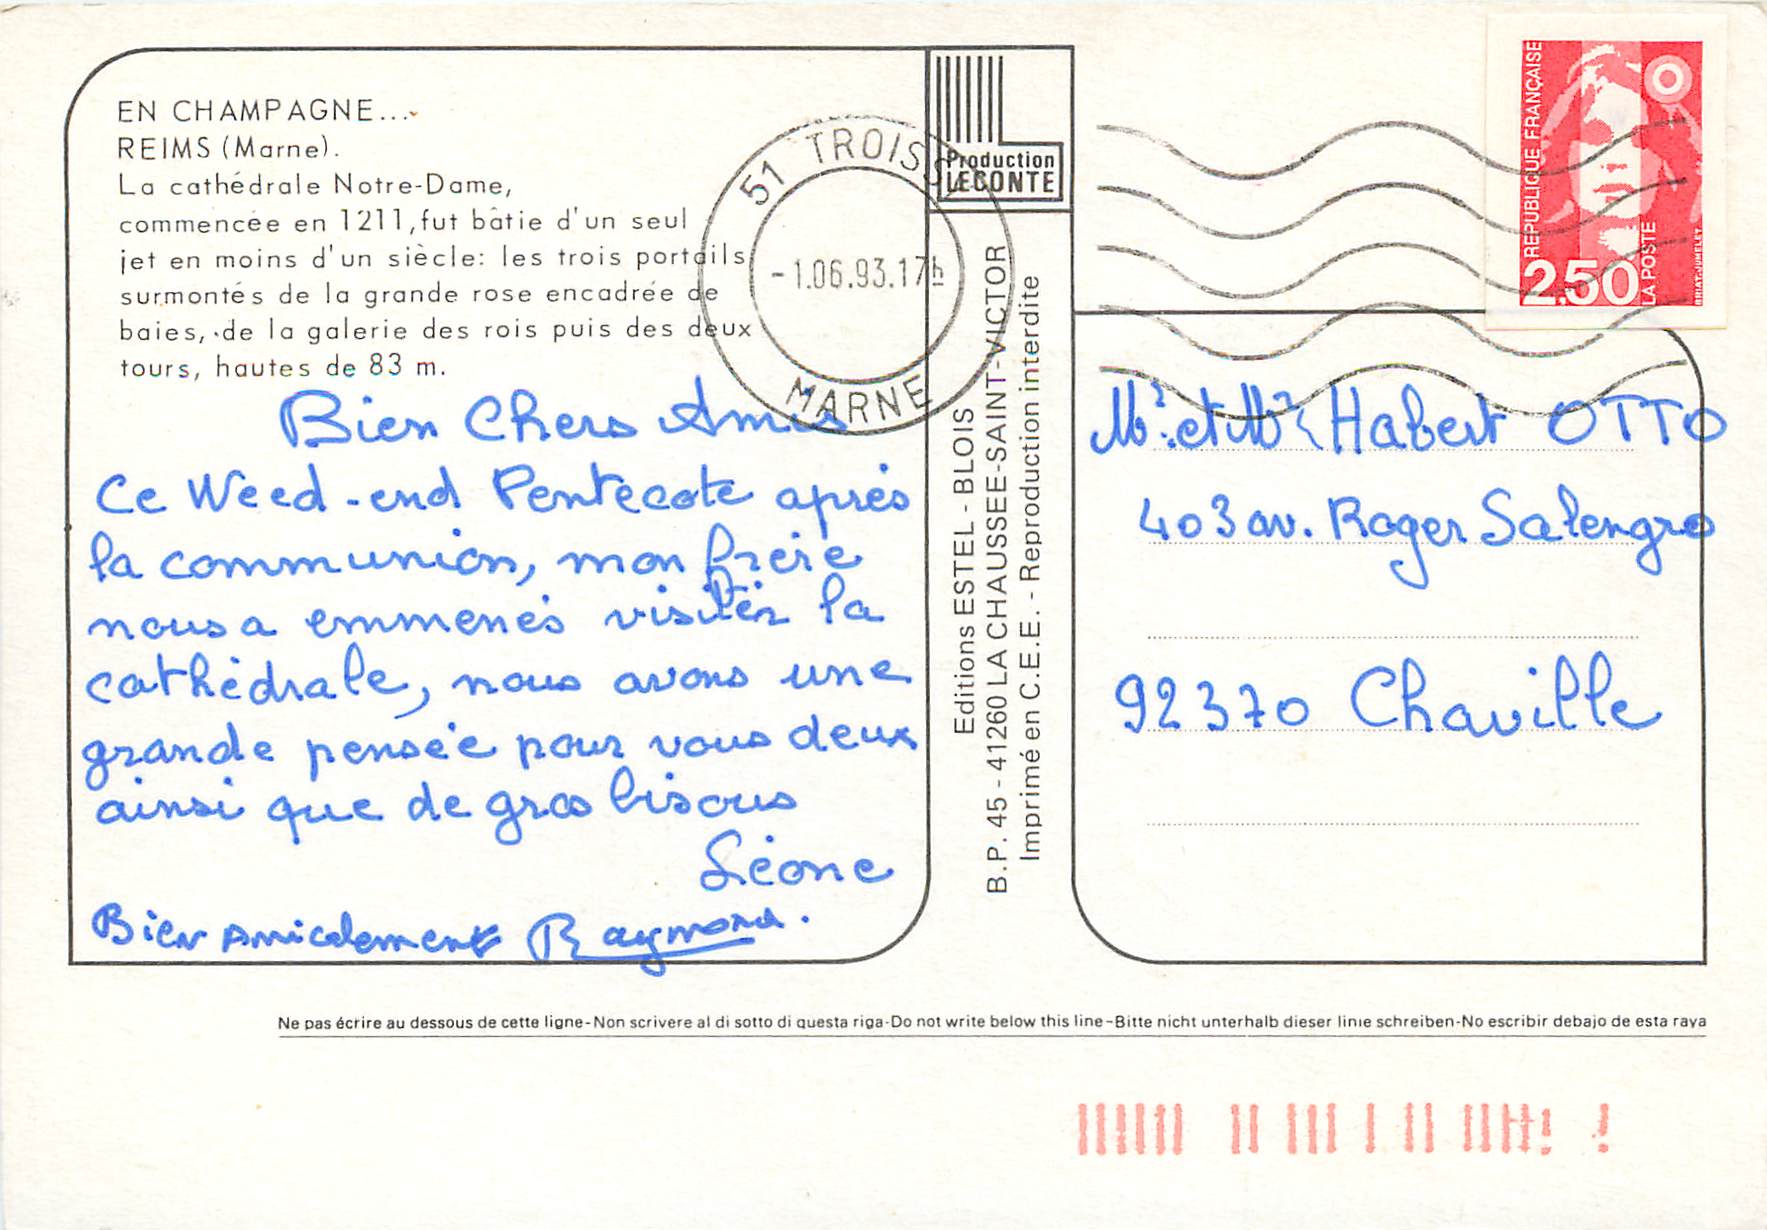 EN CHAMPAGNE...
REIMS (Marne).
La cathédrale Notre-Dame,
commencée en 1211, fut bâtie d'un seul
jet en moins d'un siècle: les trois portails
surmontés de la grande rose encadrée de
baies, de la galerie des rois puis des deux
tours, hautes de 83 m.
Bien Chers Amis
Ce Weed-end Pentecote après
la communion, mon frère
nous a emmenés visiter la
cathédrale, nous avons une
grande pensée pour vous deux
ainsi que de gros bisous
Léone
Bien Amicalement Raymond.
51 TROIS
-1.06.93.17h
MARNE
Production
LECONTE
Editions ESTEL - BLOIS
B.P. 45 - 41260 LA CHAUSSEE-SAINT-VICTOR
Imprimé en C.E.E. - Reproduction interdite
REPUBLIQUE FRANÇAISE
2,50
LA POSTE
BRIAT-JUMELET
Mr et Mr Habert OTTO
403 av. Roger Salengro
92370 Chaville
Ne pas écrire au dessous de cette ligne-Non scrivere al di sotto di questa riga-Do not write below this line-Bitte nicht unterhalb dieser linie schreiben-No escribir debajo de esta raya